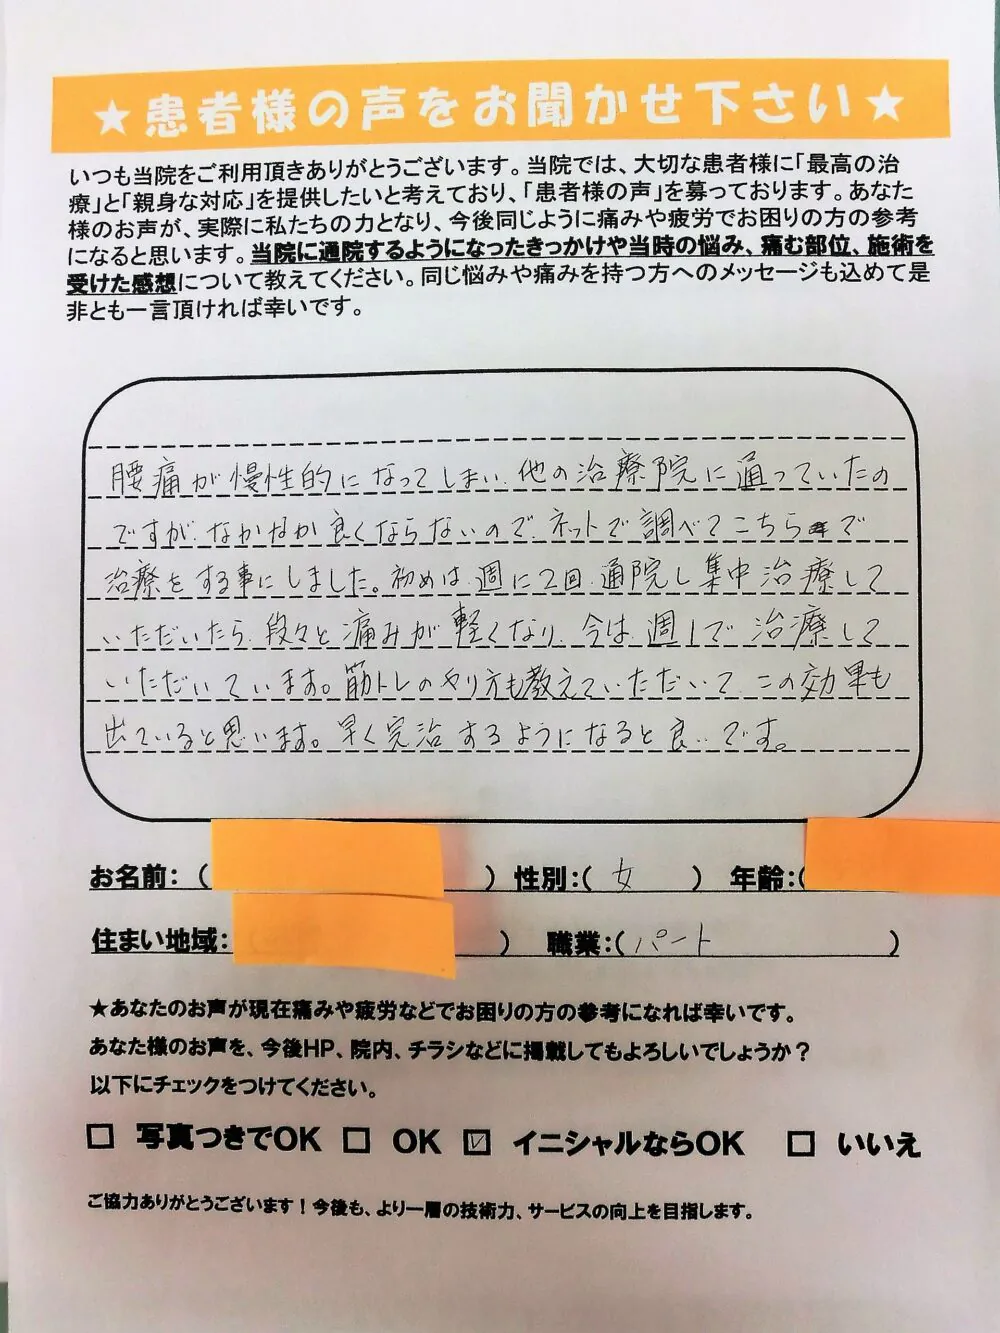 ★患者様の声をお聞かせ下さい★
いつも当院をご利用頂きありがとうございます。当院では、大切な患者様に「最高の治
療」と「親身な対応」を提供したいと考えており、「患者様の声」を募っております。あなた
様のお声が、実際に私たちの力となり、今後同じように痛みや疲労でお困りの方の参考
になると思います。当院に通院するようになったきっかけや当時の悩み、痛む部位、施術を
受けた感想について教えてください。同じ悩みや痛みを持つ方へのメッセージも込めて是
非とも一言頂ければ幸いです。
腰痛が慢性的になってしまい、他の治療院に通っていたの
ですが、なかなか良くならないので、ネットで調べてこちらで
治療をする事にしました。初めは、週に2回、通院し集中治療して
いただいたら、段々と痛みが軽くなり、今は、週1で治療して
いただいています。筋トレのやり方も教えていただいて、この効果も
出ていると思います。早く完治するようになると良いです。
お名前：（ ）性別：（ 女 ） 年齢：（
住まい地域： ） 職業：（パート ）
★あなたのお声が現在痛みや疲労などでお困りの方の参考になれば幸いです。
あなた様のお声を、今後HP、院内、チラシなどに掲載してもよろしいでしょうか？
以下にチェックをつけてください。
□ 写真つきでOK □ OK ☑ イニシャルならOK □ いいえ
ご協力ありがとうございます！今後も、より一層の技術力、サービスの向上を目指します。